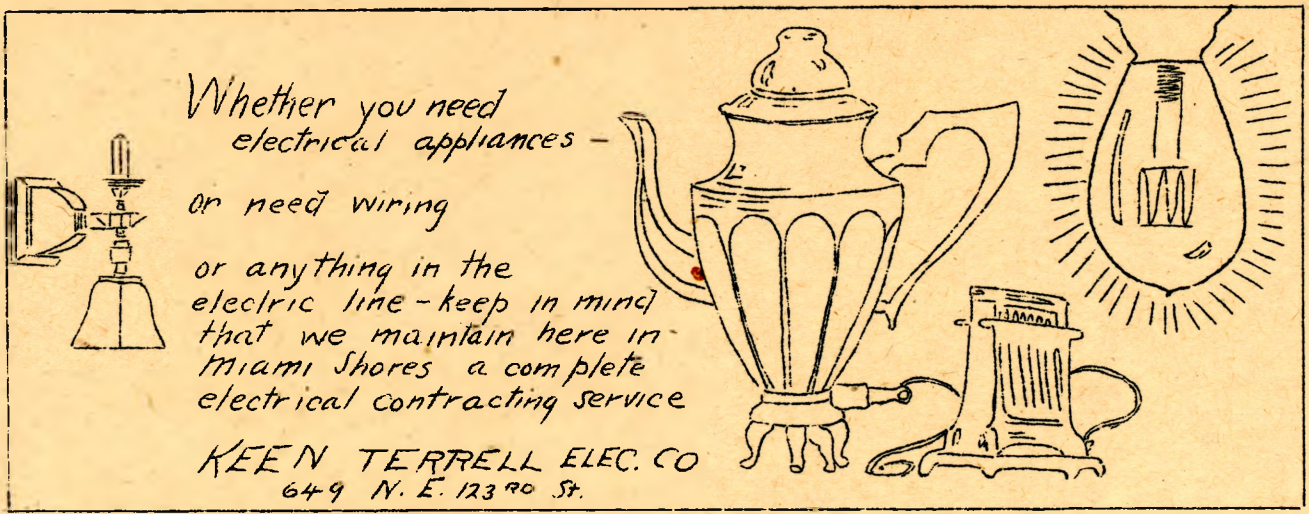 Whether you need
electrical appliances -
or need wiring
or anything in the
electric line - keep in mind
that we maintain here in
Miami Shores a complete
electrical contracting service
KEEN TERRELL ELEC. CO
649 N. E. 123 RD St.